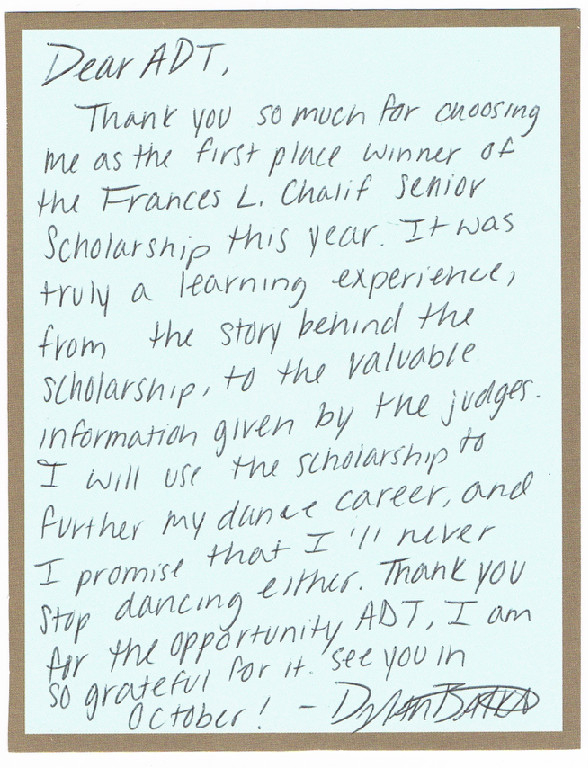 Dear ADT,
Thank you so much for choosing
me as the first place winner of
the Frances L. Chalif Senior
Scholarship this year. It was
truly a learning experience,
from the story behind the
scholarship, to the valuable
information given by the judges.
I will use the scholarship to
further my dance career, and
I promise that I'll never
stop dancing either. Thank you
for the opportunity ADT, I am
so grateful for it. See you in
October! - Dylan